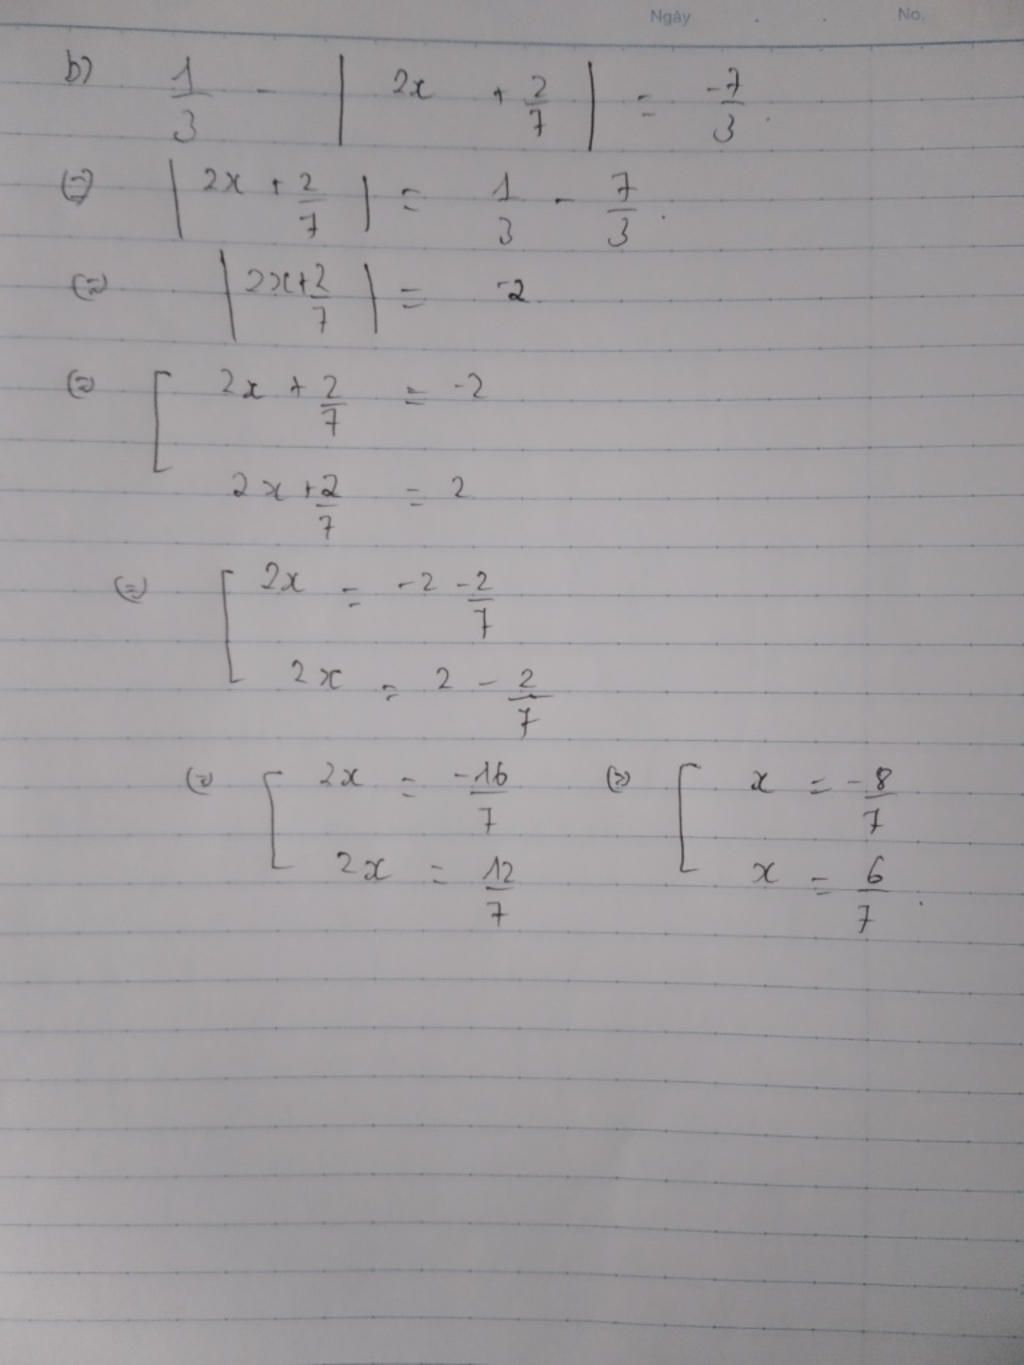 Ngày . . No.
b) 1/3 - | 2x + 2/7 | = -7/3.
(=) | 2x + 2/7 | = 1/3 - 7/3.
(=) | 2x+2/7 | = -2.
(=) [ 2x + 2/7 = -2
2x+2/7 = 2
(=) [ 2x = -2 - 2/7
2x = 2 - 2/7
(=) [ 2x = -16/7 (=) [ x = -8/7
2x = 12/7 x = 6/7.